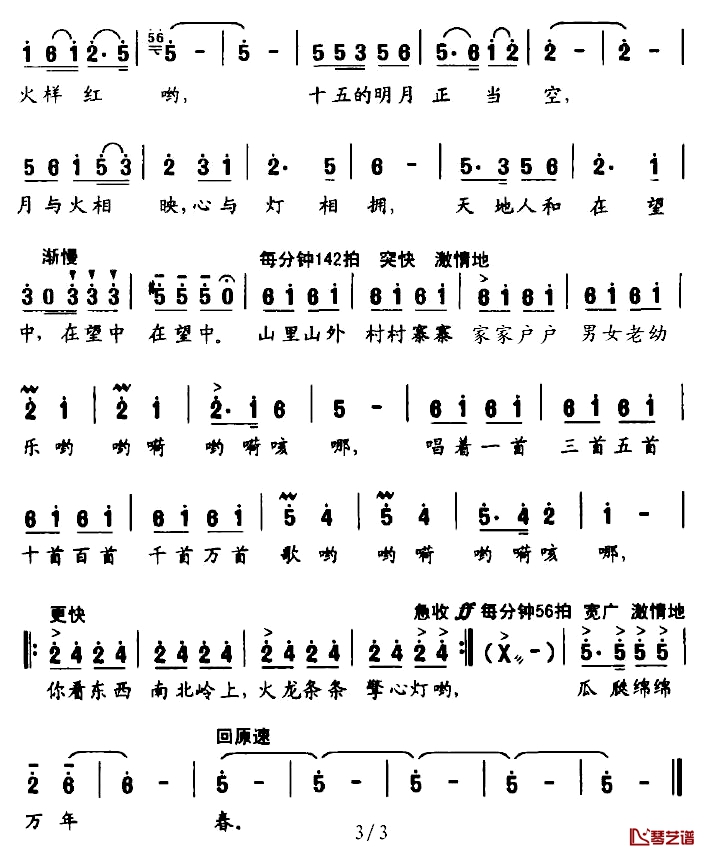 1̇ 6 1̇ 2̇· 5̇ | 56 5̇ - | 5̇ - | 5 5 3 5 6 | 5̇· 6 1̇ 2̇ | 2̇ - | 2̇ - |
火样 红 哟, 十五的明月 正 当 空,
5 6 1̇ 5̇ 3̇ | 2̇ 3̇ 1̇ | 2̇· 5 | 6 - | 5· 3 5 6 | 2̇· 1̇ |
月与火相 映,心与 灯 相 拥, 天 地人和 在 望
渐慢 每分钟142拍 突快 激情地
3̇ 0 3̇ 3̇ 3̇ | 5̇ 5̇ 5̇ 0 | 6 1̇ 6 1̇ | 6 1̇ 6 1̇ | 6 1̇ 6 1̇ | 6 1̇ 6 1̇ |
中, 在望中 在望中。 山里山外 村村寨寨 家家户户 男女老幼
2̇ 1̇ | 2̇ 1̇ | 2̇· 1̇ 6 | 5 - | 6 1̇ 6 1̇ | 6 1̇ 6 1̇ |
乐 哟 哟 嗬 哟 嗬咳 哪, 唱着一首 三首五首
6 1̇ 6 1̇ | 6 1̇ 6 1̇ | 5̇ 4̇ | 5̇ 4̇ | 5̇· 4̇ 2̇ | 1̇ - |
十首百首 千首万首 歌 哟 哟 嗬 哟 嗬咳 哪,
更快 急收 ff 每分钟56拍 宽广 激情地
‖: 2̇ 4̇ 2̇ 4̇ | 2̇ 4̇ 2̇ 4̇ | 2̇ 4̇ 2̇ 4̇ | 2̇ 4̇ 2̇ 4̇ :‖ (X -) | 5̇· 5̇ 5̇ 5̇ |
你看东西 南北岭上, 火龙条条 擎心灯哟, 瓜 瓞绵绵
回原速
2̇ 6̇ | 6̇ - | 5̇ - | 5̇ - | 5̇ - | 5̇ - | 5̇ - ‖
万 年 春。
3/3
琴艺谱